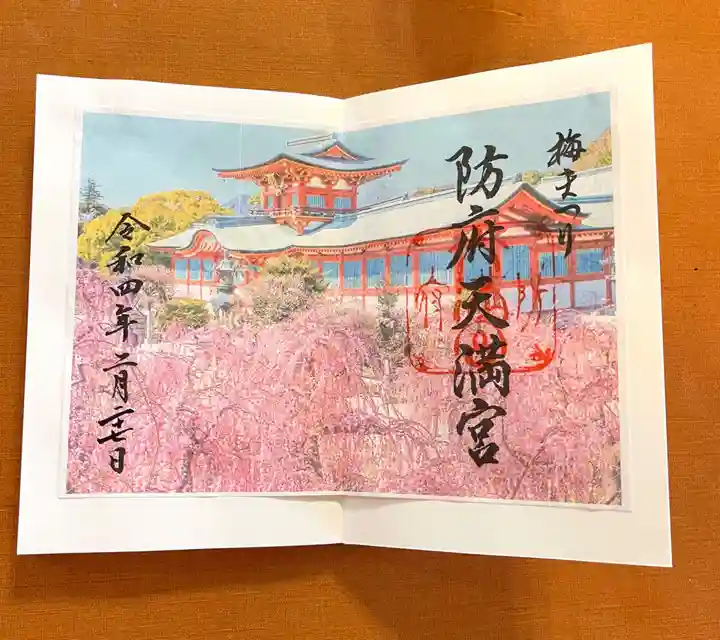 梅まつり
防府天満宮
令和四年二月二十七日